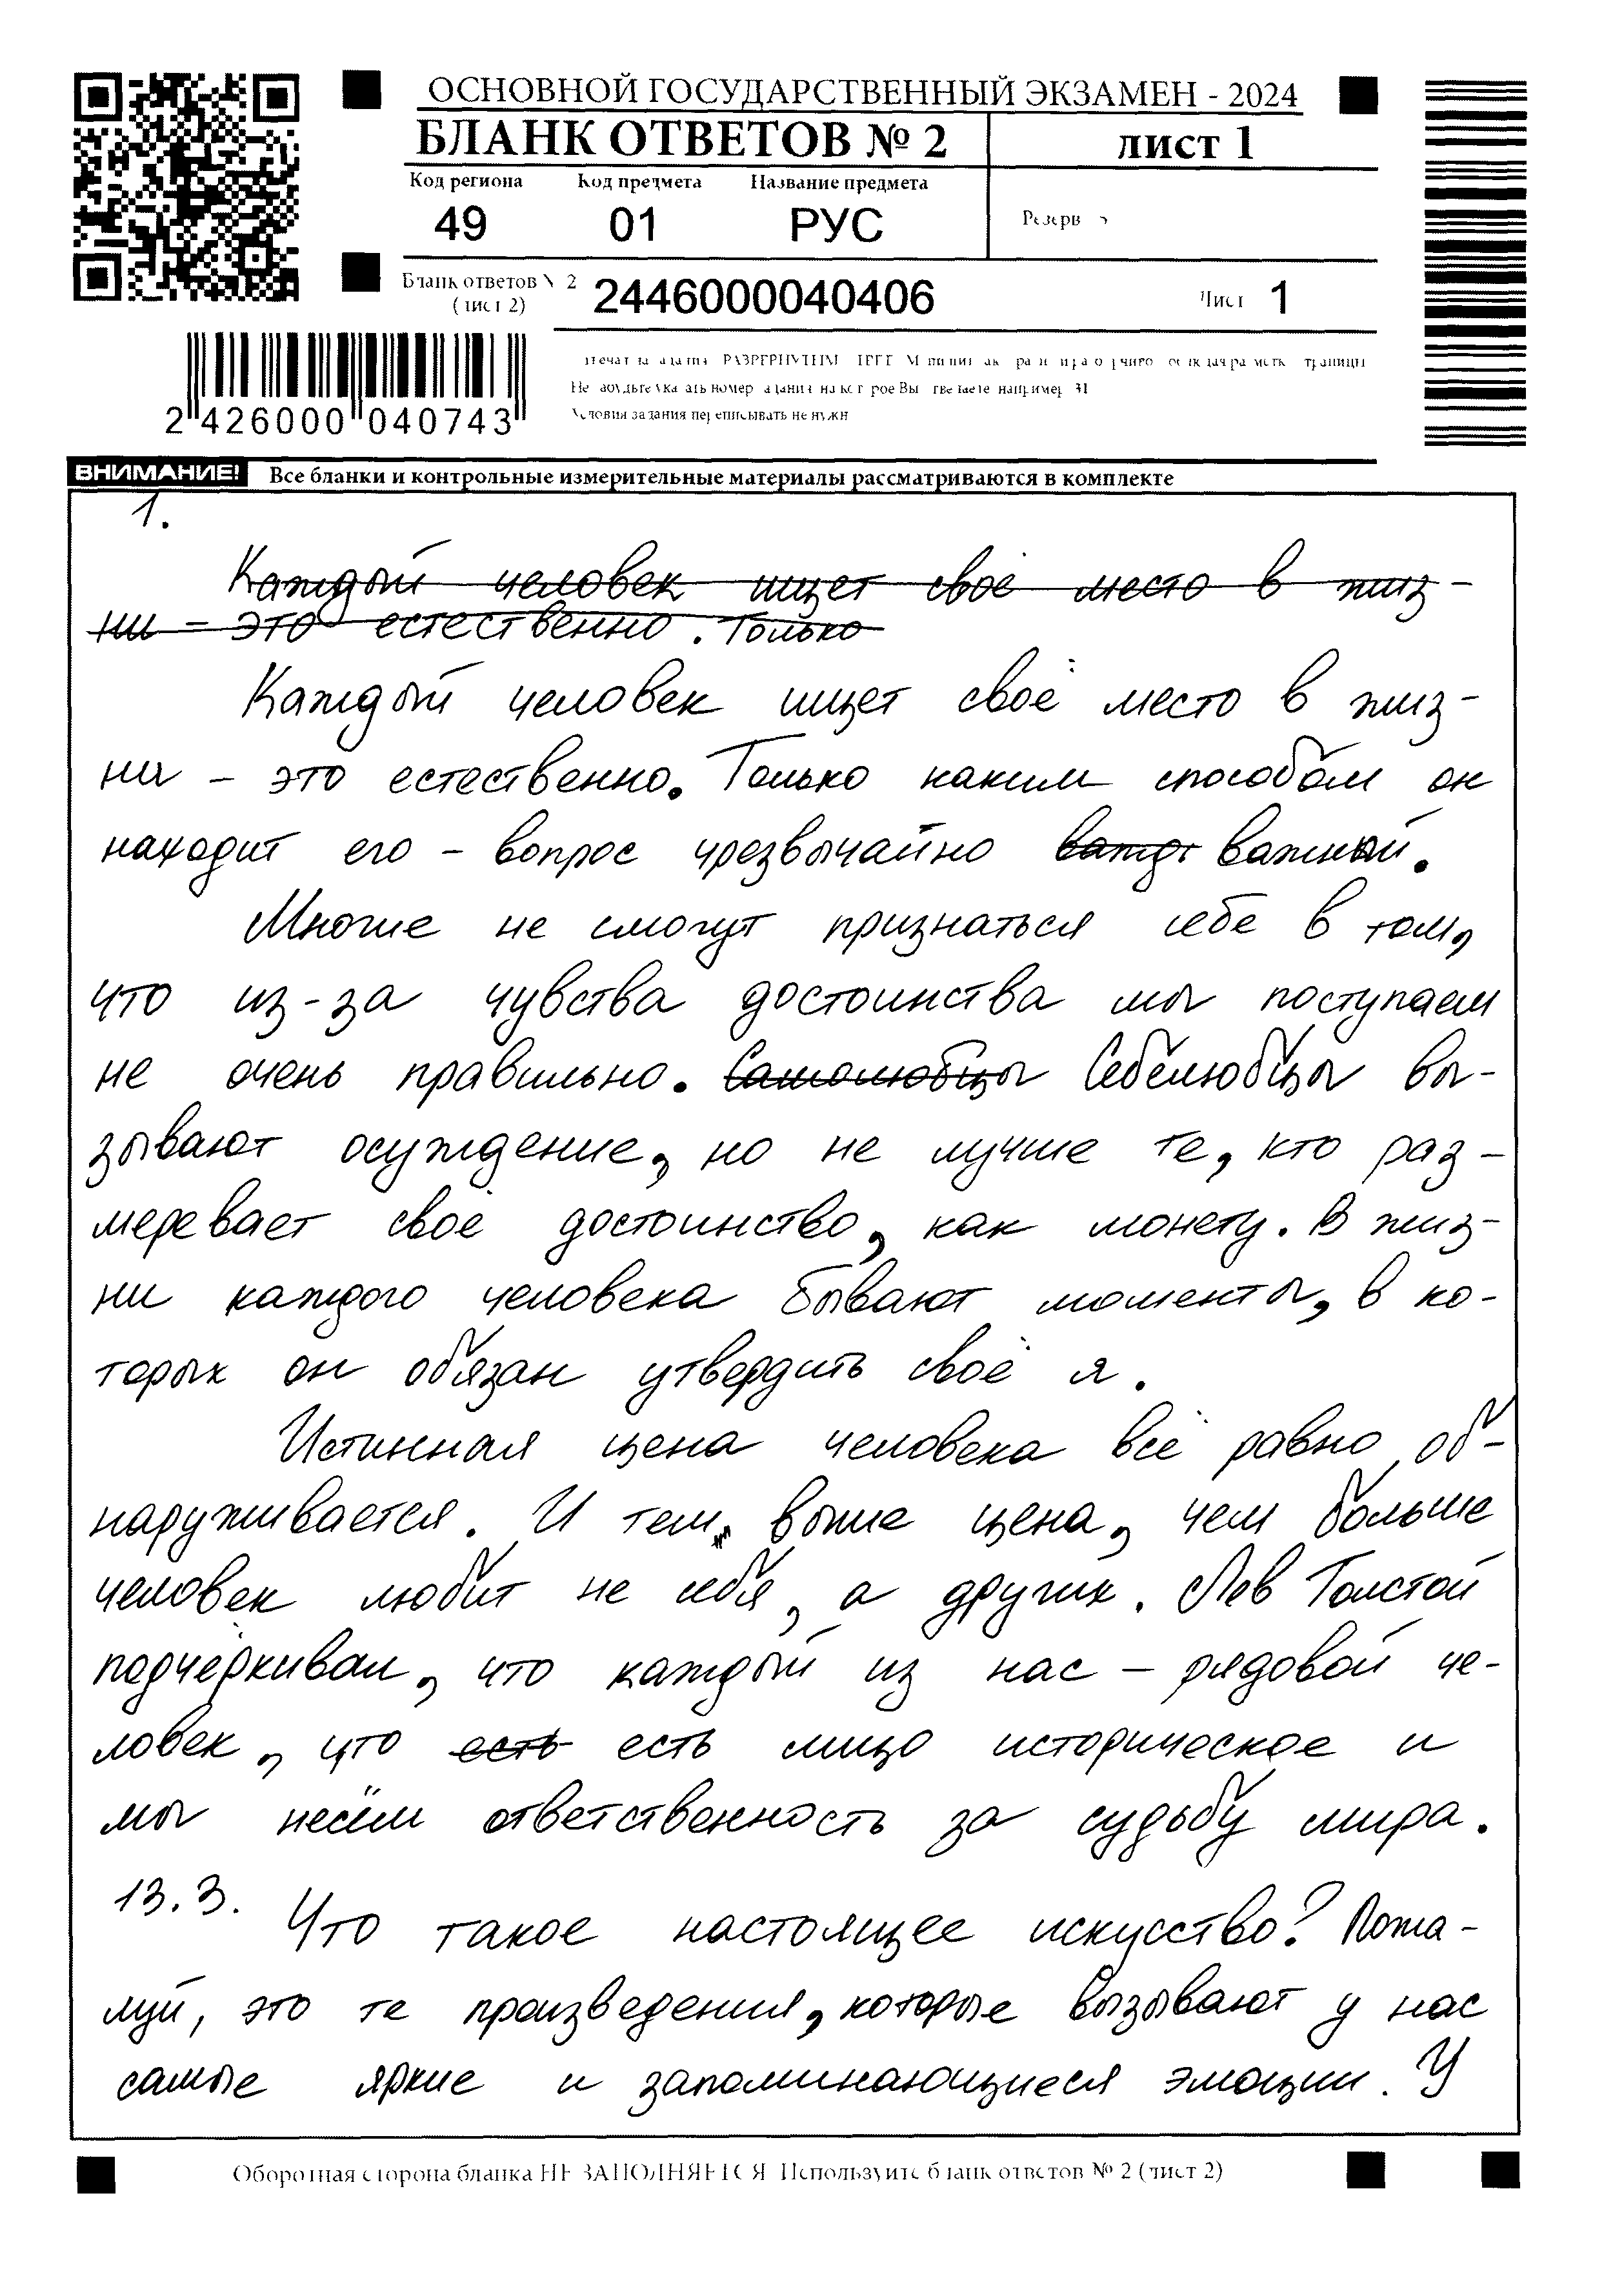 ОСНОВНОЙ ГОСУДАРСТВЕННЫЙ ЭКЗАМЕН - 2024
БЛАНК ОТВЕТОВ № 2 лист 1
Код региона Код предмета Название предмета
49 01 РУС
Резерв
Бланк ответов № 2
(лист 2) 2446000040406 Лист 1
2 426000 040743
Условия задания переписывать не нужно
ВНИМАНИЕ! Все бланки и контрольные измерительные материалы рассматриваются в комплекте
1.
Каждый человек ищет своё место в жиз-
ни – это естественно. Только
Каждый человек ищет своё место в жиз-
ни – это естественно. Только каким способом он
находит его – вопрос чрезвычайно важный.
Многие не смогут признаться себе в том,
что из-за чувства достоинства мы поступаем
не очень правильно. Самолюбцы Себелюбцы вы-
зывают осуждение, но не лучше те, кто раз-
меревает своё достоинство, как монету. В жиз-
ни каждого человека бывают моменты, в ко-
торых он обязан утвердить своё я.
Истинная цена человека всё равно об-
наруживается. И тем выше цена, чем больше
человек любит не себя, а других. Лев Толстой
подчёркивал, что каждый из нас – рядовой че-
ловек, что есть есть лицо историческое и
мы несём ответственность за судьбу мира.
13.3. Что такое настоящее искусство? Пожа-
луй, это те произведения, которые вызывают у нас
самые яркие и запоминающиеся эмоции. У
Оборотная сторона бланка НЕ ЗАПОЛНЯЕТСЯ. Используйте бланк ответов № 2 (лист 2)